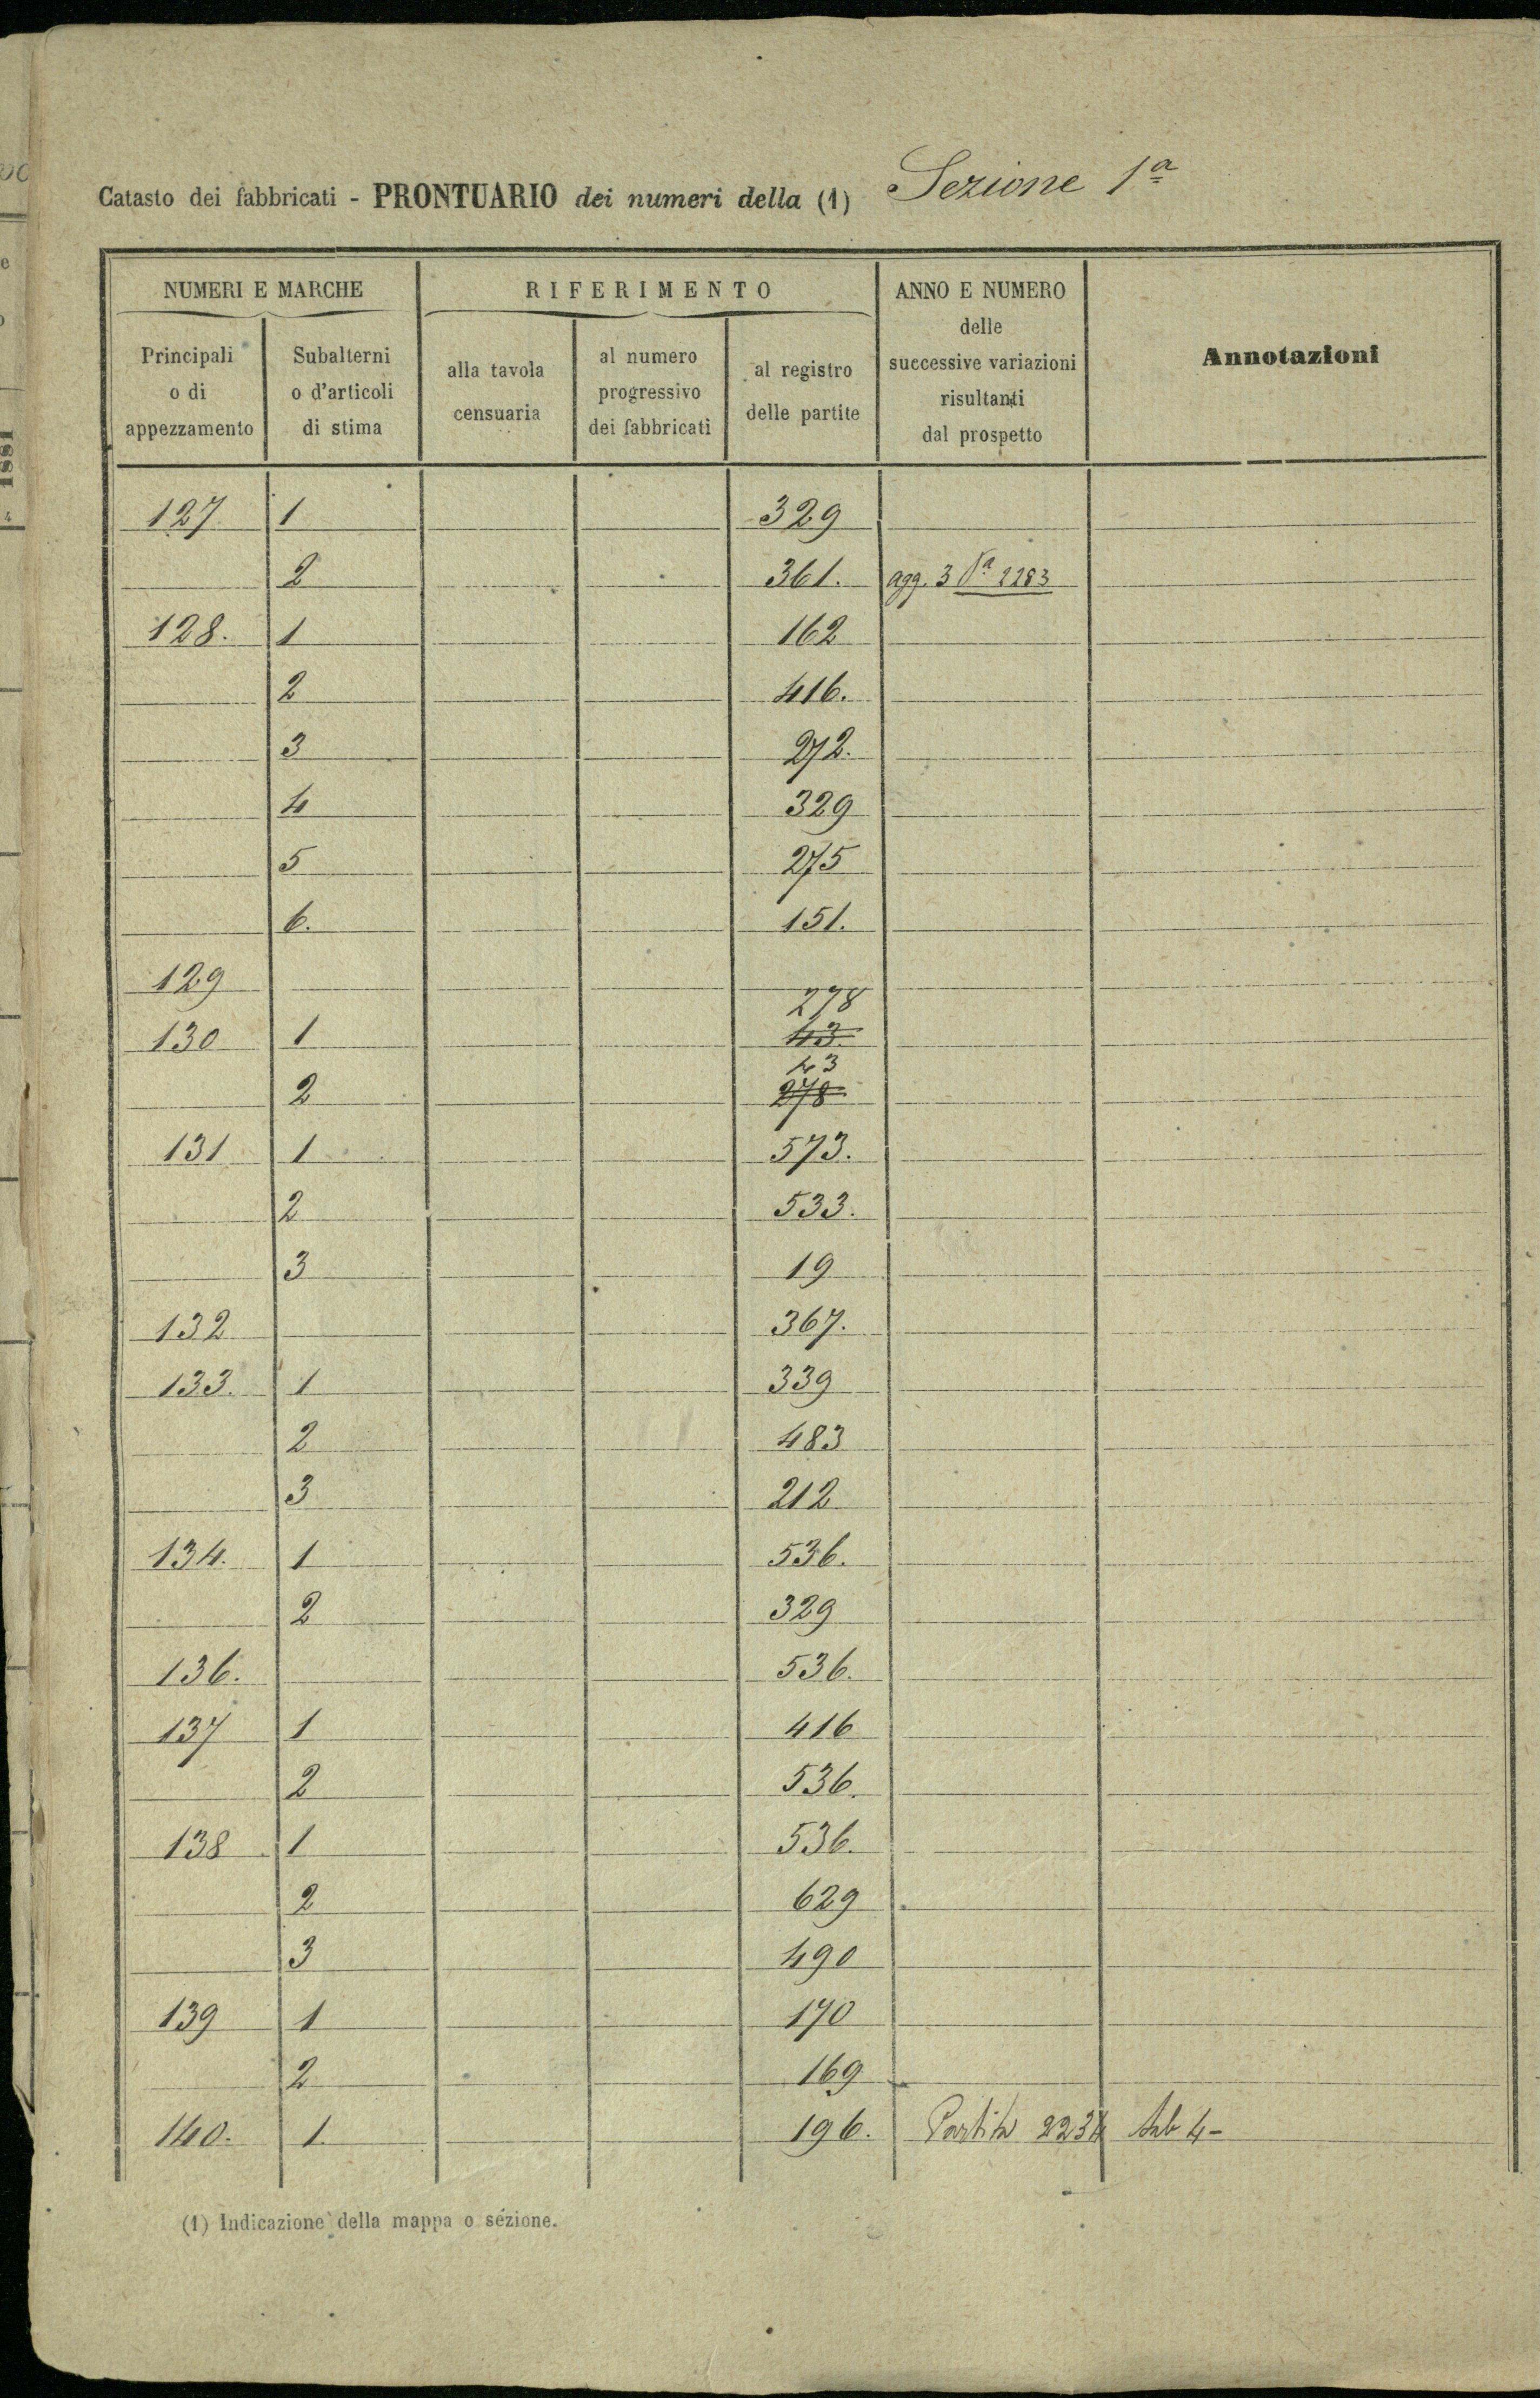 Catasto dei fabbricati - PRONTUARIO dei numeri della (1) Sezione 1ª
NUMERI E MARCHE RIFERIMENTO ANNO E NUMERO delle successive variazioni risultanti dal prospetto Annotazioni
Principali o di appezzamento Subalterni o d'articoli di stima alla tavola censuaria al numero progressivo dei fabbricati al registro delle partite
127 1 329
2 361. agg. 3 Pª 2283
128. 1 162
2 416.
3 272.
4 329
5 275
6. 151.
129
278
130 1 43.
43
2 278
131 1 573.
2 533.
3 19
132 367.
133. 1 339
2 483
3 212
134. 1 536.
2 329
136. 536.
137 1 416
2 536.
138 1 536.
2 629
3 490
139 1 170
2 169
140. 1. 196. Partita 2234 Sub 4-
(1) Indicazione della mappa o sezione.
1881